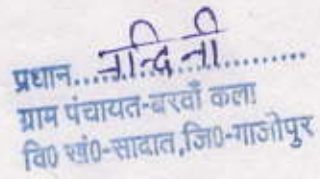 प्रधान....नन्दिनी..........
ग्राम पंचायत-बरवाँ कला
वि0 खं0-सादात,जि0-गाजीपुर